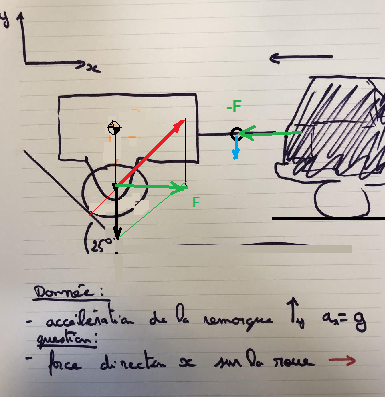 y
x
-F
F
25°
Donnée:
- accélération de la remorque ↑y a₂ = g
question:
- force direction x sur la roue →